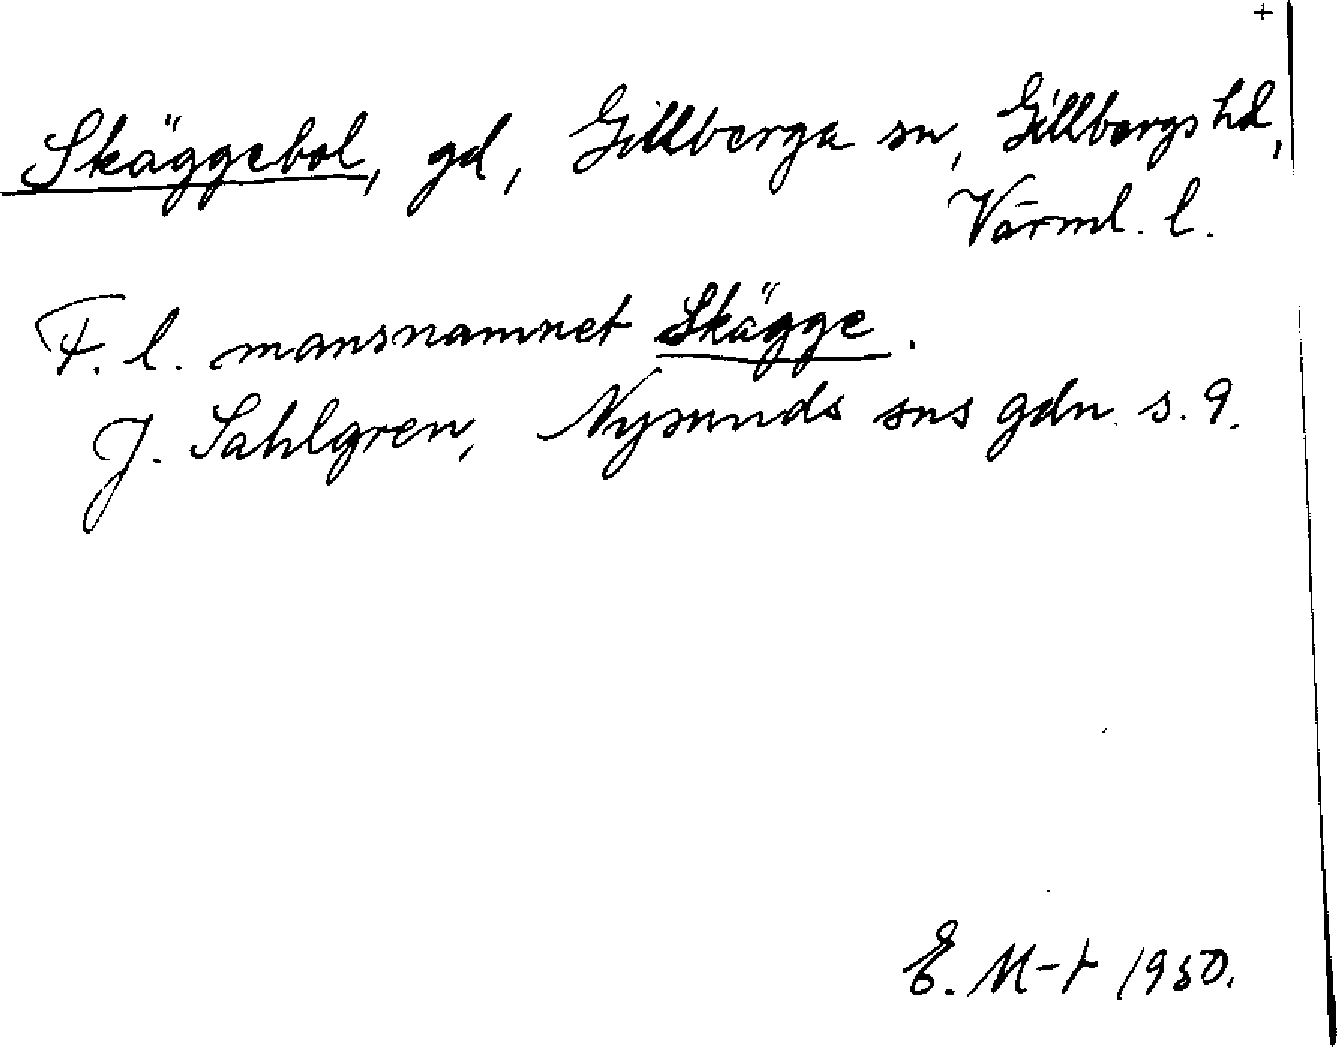 +
Skäggebol, gd, Gillberga sn, Gillbergs hd,
Värml. l.
F. l. mansnamnet Skägge.
J. Sahlgren, Nysunds sns gdn s. 9.
E. M-t 1950.